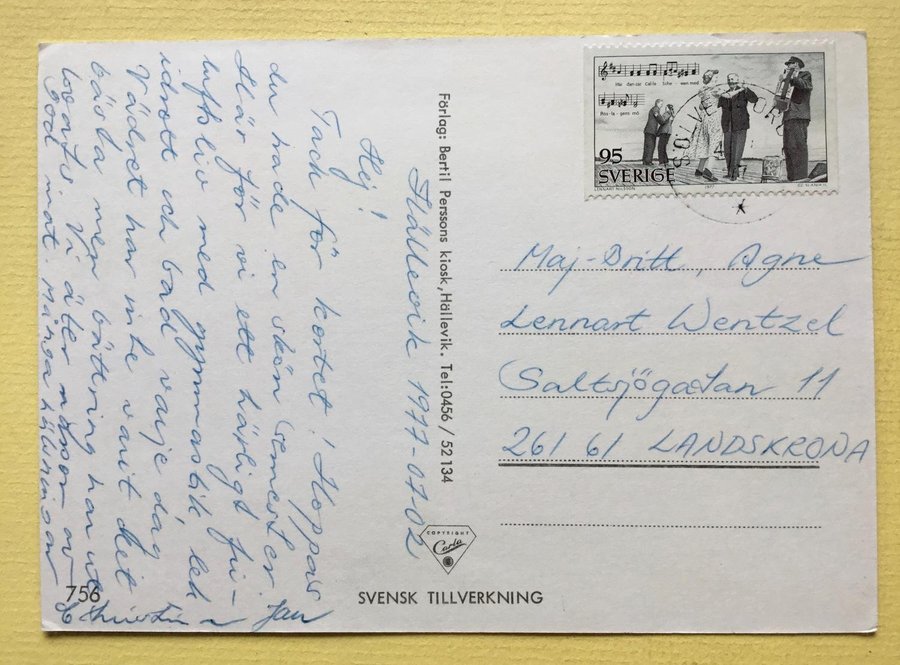 Hällevik 1977-07-02
Hej!
Tack för kortet! Hoppas
du hade en skön semester
Här får vi ett härligt fri-
luftsliv med gymnastik, lek
idrott och bad varje dag
Vädret har inte varit det
bästa men bättring har vi
Vi äter massor av
god mat. Många hälsningar
Jan
Förlag: Bertil Perssons kiosk, Hällevik. Tel: 0456 / 52 134
756
COPYRIGHT
SVENSK TILLVERKNING
Här dansar Calle Sche - wen med
Ros-la - gens mö
95
SVERIGE
1977
SÖLVESBORG
Maj-Britt, Agne
Lennart Wentzel
Saltsjögatan 11
261 61 LANDSKRONA